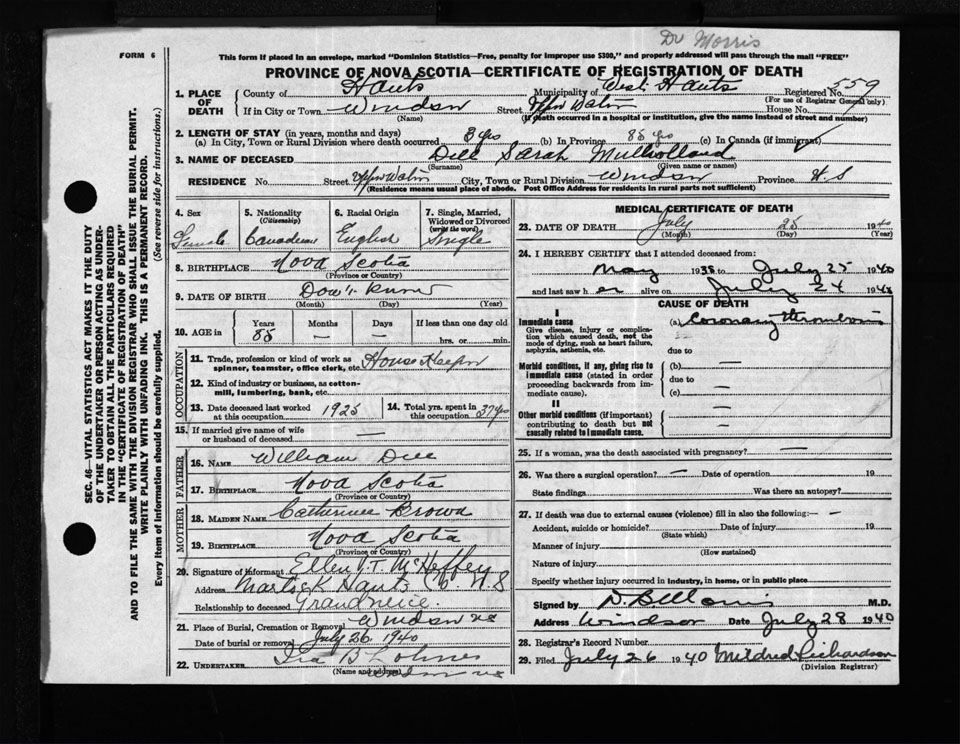 Dr Morris
FORM 6
This form if placed in an envelope, marked "Dominion Statistics—Free, penalty for improper use $300," and properly addressed will pass through the mail "FREE"
PROVINCE OF NOVA SCOTIA—CERTIFICATE OF REGISTRATION OF DEATH
1. PLACE OF DEATH
County of Hants Municipality of West Hants Registered No. 559
(For use of Registrar General only)
If in City or Town Windsor Street Upper Water House No.
(Name) (If death occurred in a hospital or institution, give the name instead of street and number)
2. LENGTH OF STAY (in years, months and days)
(a) In City, Town or Rural Division where death occurred 3 yrs (b) In Province 85 yrs (c) In Canada (if immigrant)
3. NAME OF DECEASED Dill Sarah Mulholland
(Surname) (Given name or names)
RESIDENCE No. Street Upper Water City, Town or Rural Division Windsor Province N.S
(Residence means usual place of abode. Post Office Address for residents in rural parts not sufficient)
4. Sex Female
5. Nationality (Citizenship) Canadian
6. Racial Origin English
7. Single, Married, Widowed or Divorced (write the word) Single
8. BIRTHPLACE Nova Scotia
(Province or Country)
9. DATE OF BIRTH Don't know
(Month) (Day) (Year)
10. AGE in
Years Months Days If less than one day old
85 — — hrs. or min.
OCCUPATION
11. Trade, profession or kind of work as spinner, teamster, office clerk, etc. House Keeper
12. Kind of industry or business, as cotton-mill, lumbering, bank, etc.
13. Date deceased last worked at this occupation 1925
14. Total yrs. spent in this occupation 37 yrs
15. If married give name of wife or husband of deceased —
FATHER
16. NAME William Dill
17. BIRTHPLACE Nova Scotia
(Province or Country)
MOTHER
18. MAIDEN NAME Catherine Brown
19. BIRTHPLACE Nova Scotia
(Province or Country)
20. Signature of informant Ellen V.T. McHeffey
Address Hants Co. N.S
Relationship to deceased Grandneice.
21. Place of Burial, Cremation or Removal Windsor NS
Date of burial or removal July 26 1940
22. UNDERTAKER Ira B
(Name and address)
MEDICAL CERTIFICATE OF DEATH
23. DATE OF DEATH July 25 1940
(Month) (Day) (Year)
24. I HEREBY CERTIFY that I attended deceased from:
May 1938 to July 25 1940
and last saw h er alive on July 24 1940
CAUSE OF DEATH
I
Immediate cause
Give disease, injury or complication which caused death, not the mode of dying, such as heart failure, asphyxia, asthenia, etc.
(a) Coronary thrombosis
due to
Morbid conditions, if any, giving rise to immediate cause (stated in order proceeding backwards from immediate cause).
(b) —
due to
(c) —
II
Other morbid conditions (if important) contributing to death but not causally related to immediate cause.
25. If a woman, was the death associated with pregnancy? —
26. Was there a surgical operation? — Date of operation 19
State findings Was there an autopsy?
27. If death was due to external causes (violence) fill in also the following:— —
Accident, suicide or homicide? Date of injury 19
(State which)
Manner of injury
(How sustained)
Nature of injury
Specify whether injury occurred in industry, in home, or in public place
Signed by M.D.
Address Windsor Date July 28 1940
28. Registrar's Record Number
29. Filed July 26 1940 Mildred Richardson
(Division Registrar)
SEC. 46—VITAL STATISTICS ACT MAKES IT THE DUTY
OF THE UNDERTAKER OR PERSON ACTING AS UNDER-
TAKER TO OBTAIN ALL THE PARTICULARS REQUIRED
IN THE "CERTIFICATE OF REGISTRATION OF DEATH"
AND TO FILE THE SAME WITH THE DIVISION REGISTRAR WHO SHALL ISSUE THE BURIAL PERMIT.
WRITE PLAINLY WITH UNFADING INK. THIS IS A PERMANENT RECORD.
Every item of information should be carefully supplied. (See reverse side for instructions.)